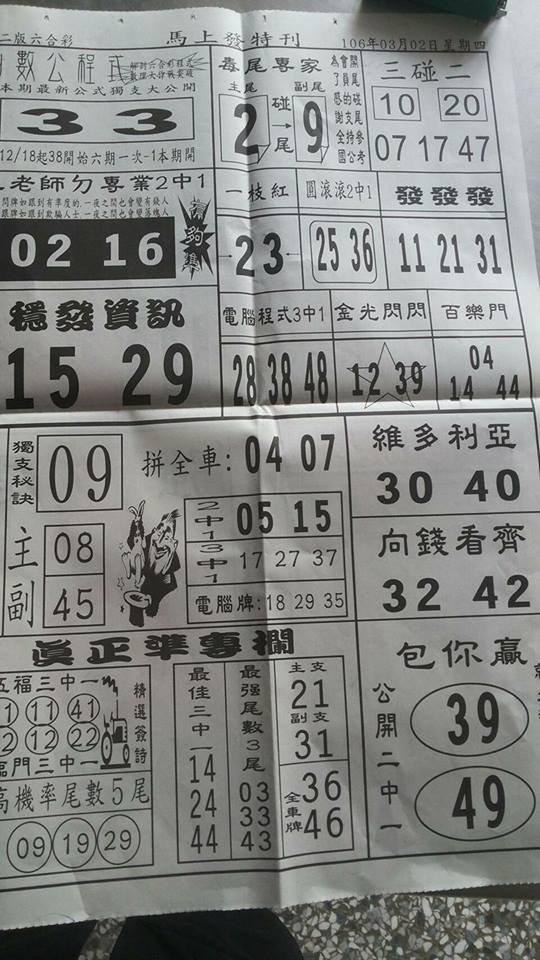 二版六合彩 馬上發特刊 106年03月02日星期四
數公程式
本期最新公式獨支大公開
3 3
12/18起38開始六期一次-1本期開
毒尾專家
主尾 碰尾 副尾
2 → 9
為會
了員
感的
謝支
全持
國
三碰二
10 20
07 17 47
老師勿專業2中1
02 16
夠準
一枝紅
23
圓滾滾2中1
25 36
發發發
11 21 31
穩發資訊
15 29
電腦程式3中1
28 38 48
金光閃閃
12 39
百樂門
04
14 44
獨支秘訣
09
拼全車: 04 07
主 08
副 45
2中1 05 15
3中1 17 27 37
電腦牌:18 29 35
維多利亞
30 40
向錢看齊
32 42
真正準專欄
五福三中一
1 11 41
2 12 22
臨門三中一
精選簽詩
高機率尾數5尾
09 19 29
最佳三中一
14
24
44
最强尾數3尾
03
33
43
主支
21
副支
31
全車牌
36
46
包你贏
公開二中一
39
49